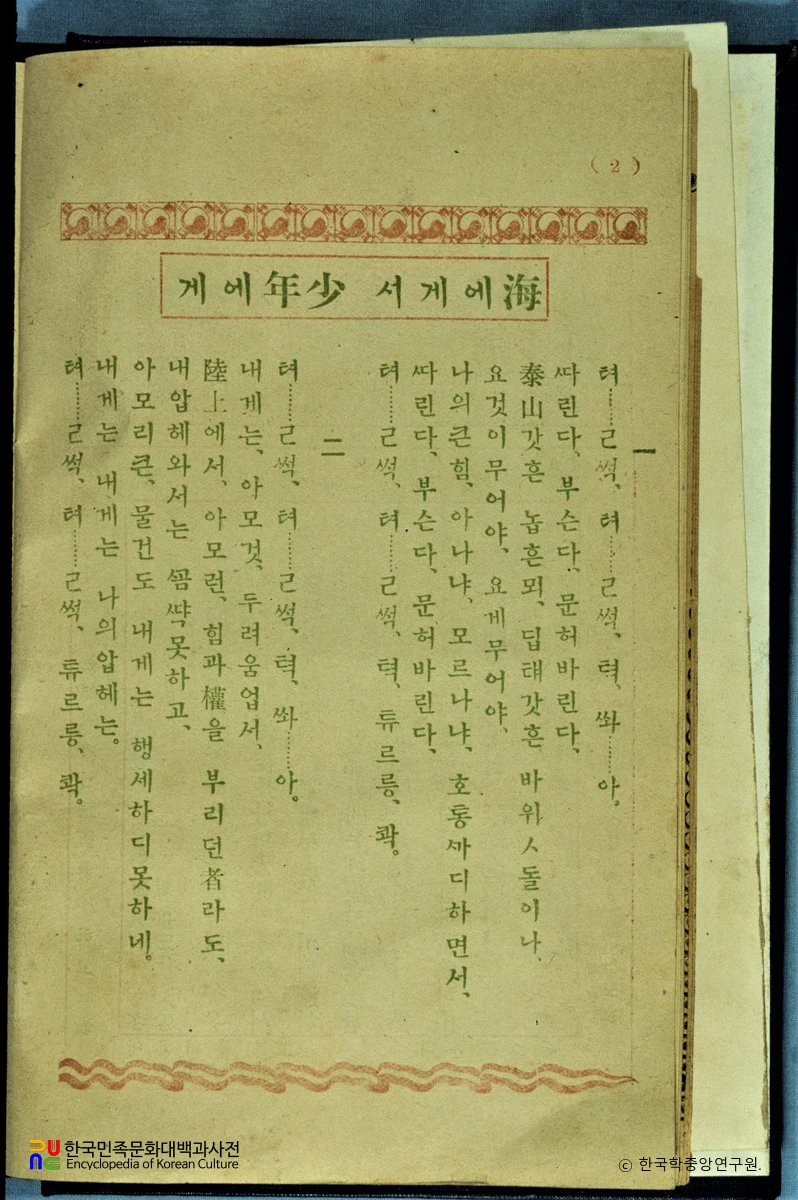 ( 2 )
海에게서 少年에게
一
텨……ㄹ썩, 텨……ㄹ썩, 텩, 쏴……아。
ᄯᅡ린다, 부슨다, 문허바린다,
泰山갓흔 놉흔뫼, 딥턔갓흔 바위ㅅ돌이나,
요것이무어야, 요게무어야,
나의큰힘, 아나냐, 모르나냐, 호통ᄭᅡ디하면서,
ᄯᅡ린다, 부슨다, 문허바린다,
텨……ㄹ썩, 텨……ㄹ썩, 텩, 튜르릉, 콱。
二
텨……ㄹ썩, 텨……ㄹ썩, 텩, 쏴……아。
내게는, 아모것, 두려움업서,
陸上에서, 아모런, 힘과權을 부리던者라도,
내압헤와서는 ᄭᅩᆷᄯᅣᆨ못하고,
아모리큰, 물건도 내게는 행세하디못하네。
내게는 내게는 나의압헤는。
텨……ㄹ썩, 텨……ㄹ썩, 튜르릉, 콱。
한국민족문화대백과사전
Encyclopedia of Korean Culture
ⓒ 한국학중앙연구원.